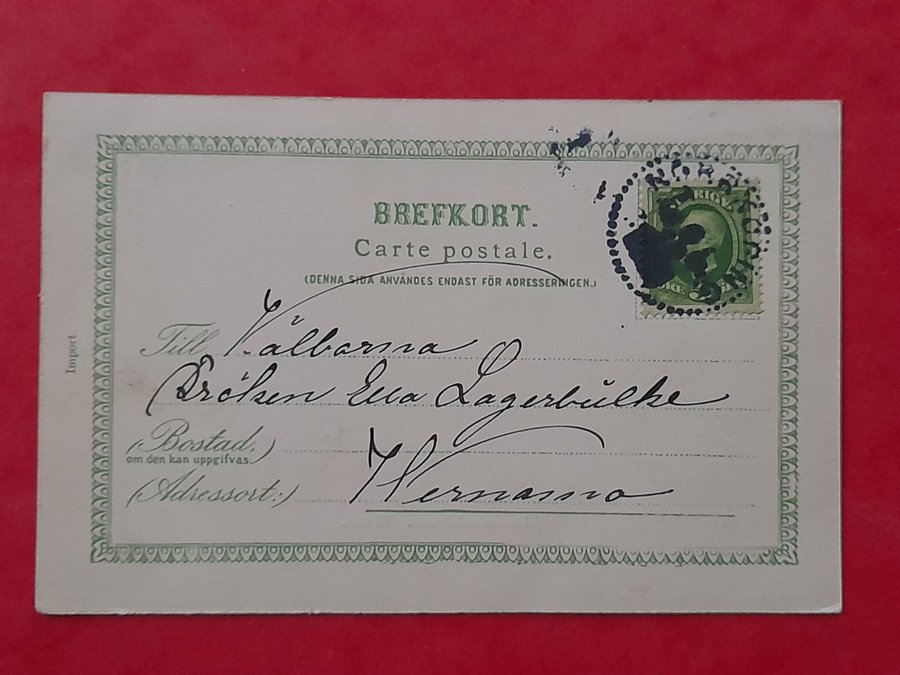 BREFKORT.
Carte postale.
(DENNA SIDA ANVÄNDES ENDAST FÖR ADRESSERINGEN.)
NORRKÖPING
Import
Till Välborna
Fröken Ewa Lagerbülke
(Bostad.)
om den kan uppgifvas.
(Adressort:) Wernamo